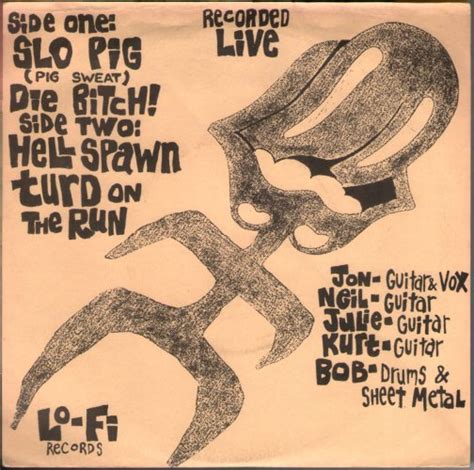 SIDE ONE:
SLO PIG
(PIG SWEAT)
DIE BITCH!
SIDE TWO:
HELL SPAWN
TURD ON
THE RUN
RECORDED
LIVE
JON- GUITAR & VOX
NEIL- GUITAR
JULIE- GUITAR
KURT- GUITAR
BOB- DRUMS &
SHEET METAL
LO-FI
RECORDS